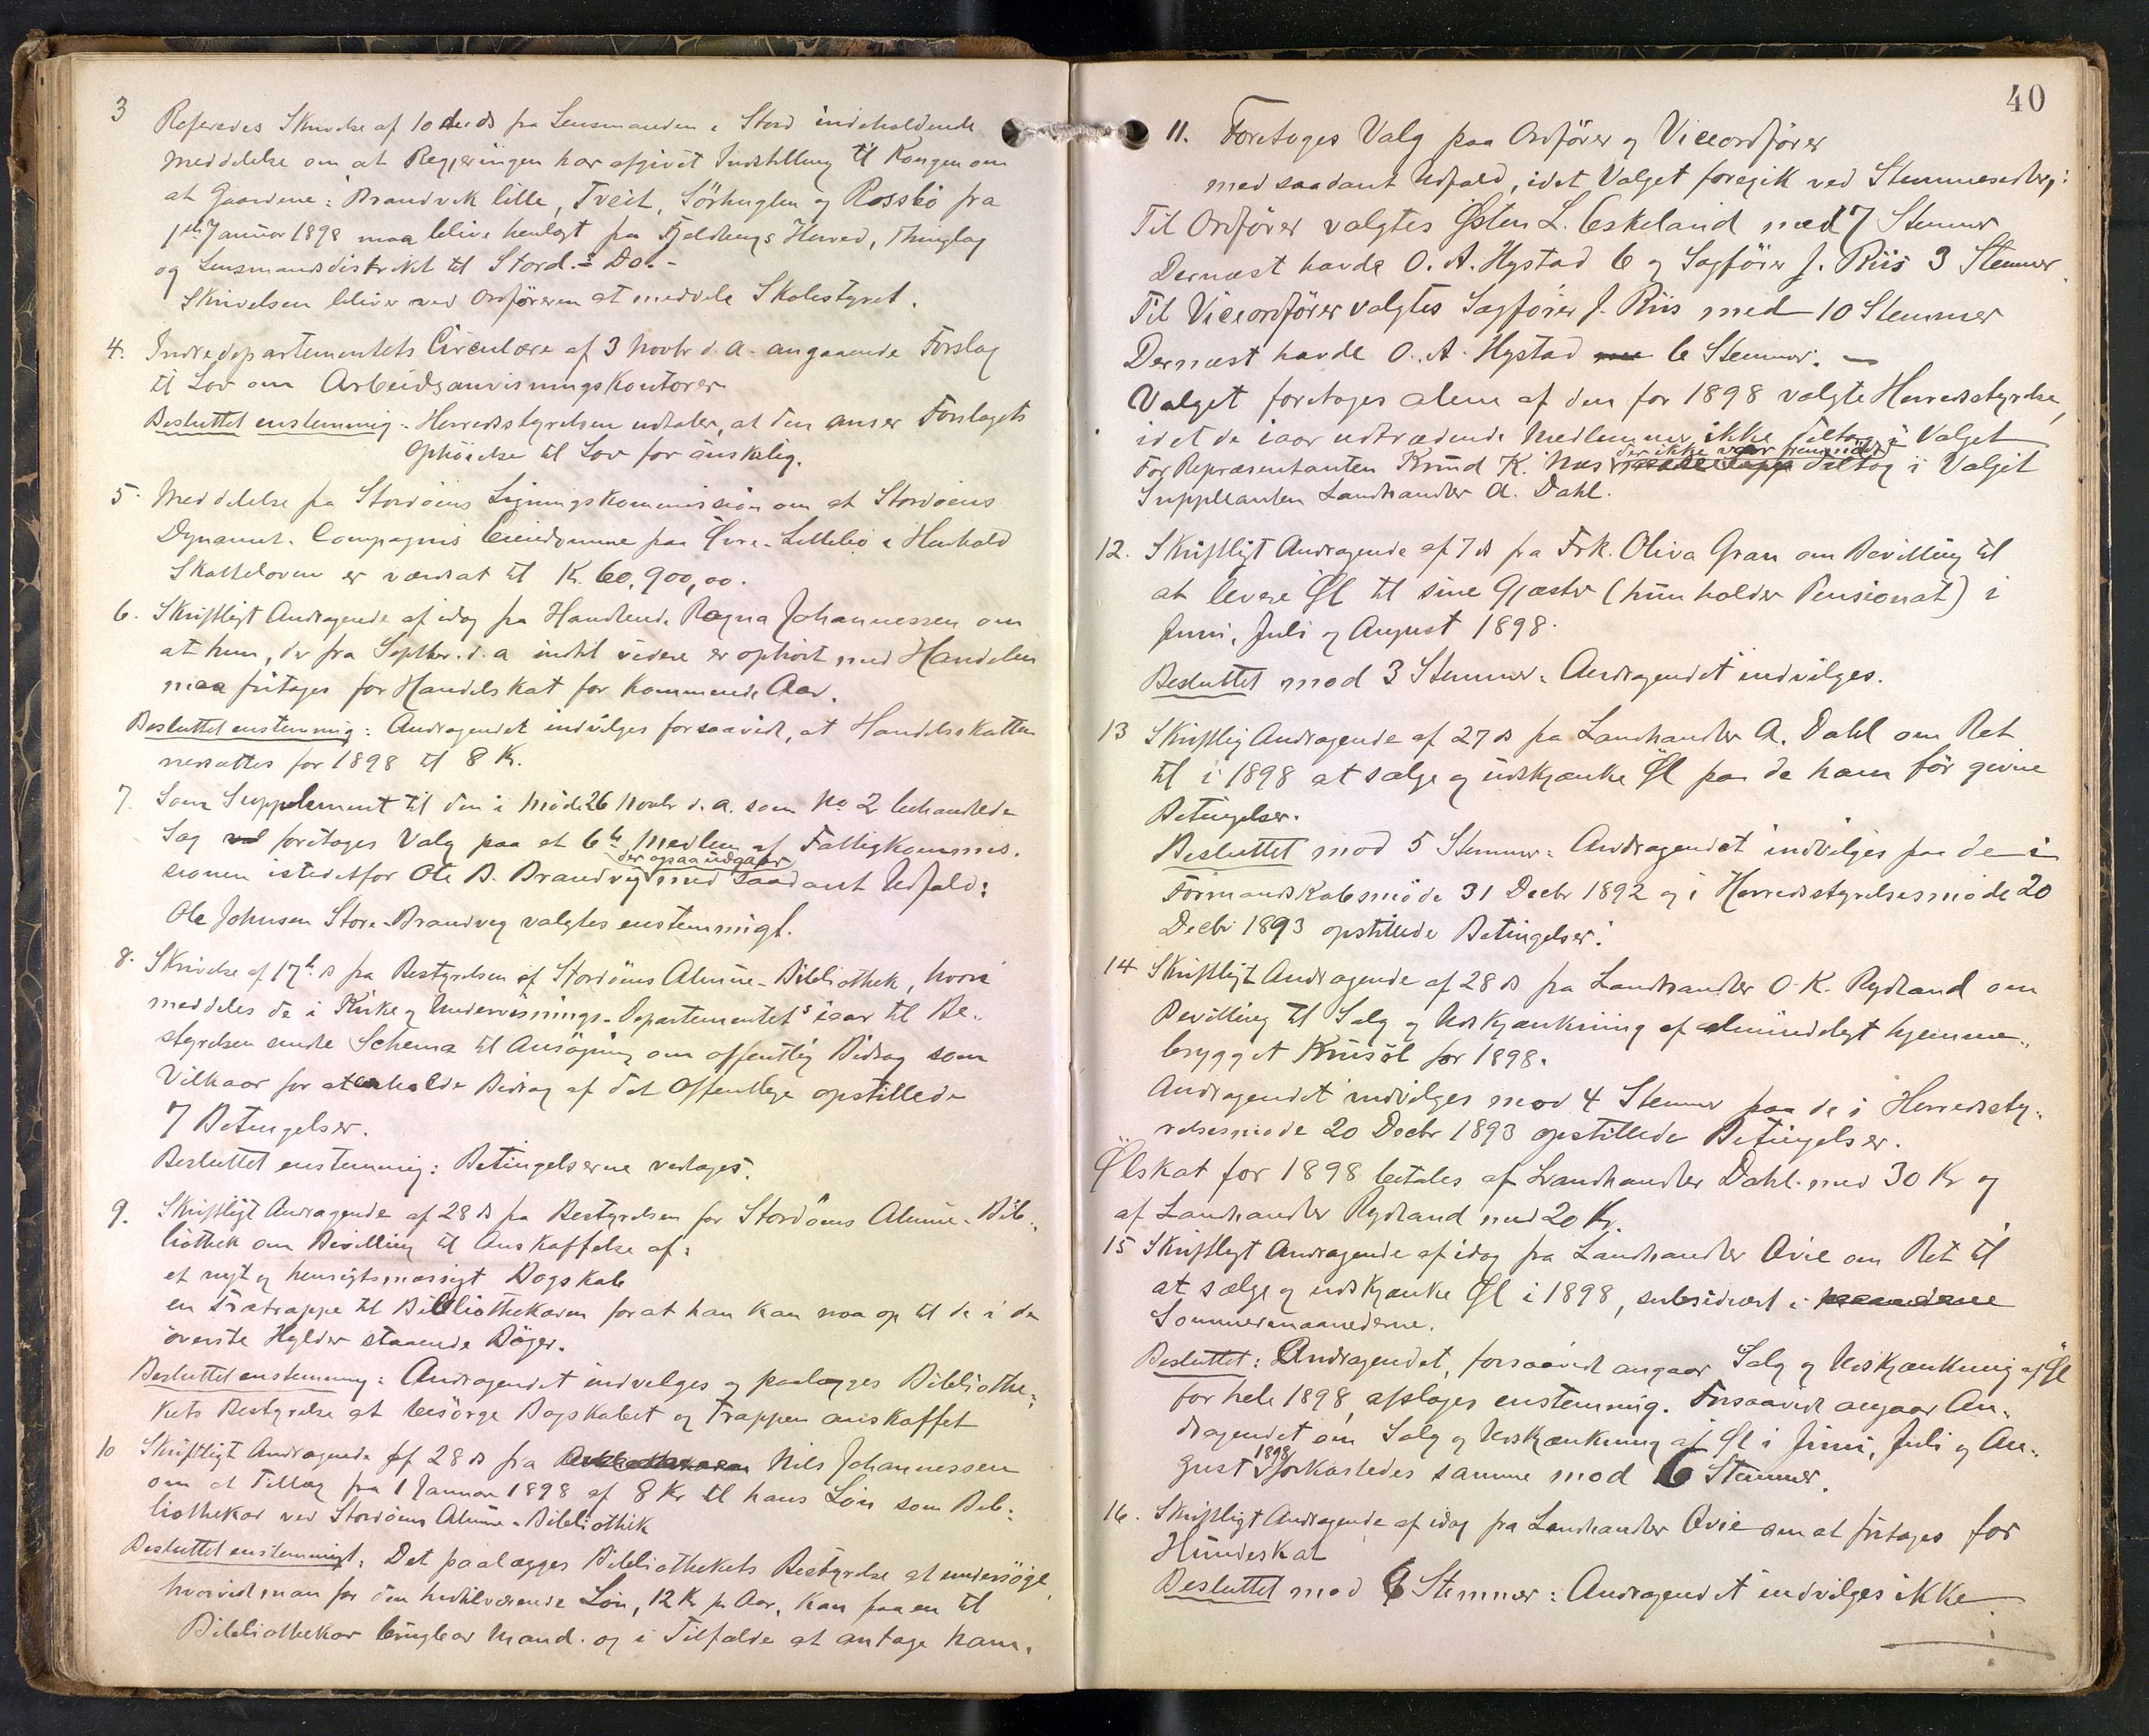 3 Referedes Skrivelse af 10 de ds fra Lensmanden i Stord indeholdende
Meddelelse om at Regjeringen har afgivet Indstilling til Kongen om
at Gaardene: Brandvik lille, Tveit, Sörhuglen og Rossbö fra
1ste Januar 1898 maa blive henlagt fra Fjeldbergs Herred, Thinglag
og Lensmandsdistrikt til Stord. = Do. -
Skrivelsen bliver ved Ordföreren at meddele Skolestyret.
4. Indredepartementets Circulære af 3 Novbr d. a. angaaende Forslag
til Lov om Arbeidsanvisningskontorer
Besluttet enstemmig: Herredsstyrelsen udtaler, at den anser Forslagets
Ophöielse til Lov for önskelig.
5. Meddelelse fra Stordöens Ligningskommission om at Stordöens
Dynamit-Compagnis Eiendomme paa Övre-Litlebö i Henhold
Skatteloven er værdsat til Kr. 60,900,00.
6. Skriftligt Andragende af idag fra Handlende Ragna Johannessen om
at hun, der fra Septbr. d. a indtil videre er ophört med Handelen
maa fritages for Handelskat for kommende Aar.
Besluttet enstemmig: Andragendet indvilges forsaavidt, at Handelsskatten
nedsættes for 1898 til 8 Kr.
7. Som Supplement til den i Möde 26 Novbr d. a. som No 2 behandlede
Sag ved foretoges Valg paa et 6te Medlem af Fattigkommis-
der ogsaa udgaar
sionen istedetfor Ole B. Brandvig med saadant Udfald:
Ole Johnsen Store-Brandveg valgtes enstemmigt.
8. Skrivelse af 17de ds fra Bestyrelsen af Stordöens Almue-Bibliothek, hvori
meddeles de i Kirke og Undervisnings-Departementets iaar til Be-
styrelsen sendte Schema til Ansögning om offentlig Bidrag som
Vilkaar for at erholde Bidrag af det Offentlige opstillede
7 Betingelser.
Besluttet enstemmig: Betingelserne vedtages.
9. Skriftligt Andragende af 28 ds fra Bestyrelsen for Stordöens Almue-Bib-
liothek om Bevilling til Anskaffelse af:
et nyt og hensigtsmæssigt Bogskab
en Trætrappe til Bibliothekaren forat han kan naa op til de i de
överste Hylder staaende Böger.
Besluttet enstemmig: Andragendet indvilges og paalægges Bibliothe-
kets Bestyrelse at besörge Bogskabet og Trappen anskaffet
10 Skriftligt Andragende af 28 ds fra Nils Johannessen
om et Tillæg fra 1 Januar 1898 af 8 Kr til hans Lön som Bib-
liothekar ved Stordöens Almue-Bibliothek
Besluttet enstemmigt: Det paalægges Bibliothekets Bestyrelse at undersöge,
hvorvidt man for den hidtilværende Lön, 12 Kr pr Aar, kan faa en til
Bibliothekar brugbar Mand og i Tilfælde at antage ham.
40
11. Foretoges Valg paa Ordförer og Viceordförer
med saadant Udfald, idet Valget foregik ved Stemmesedler:
Til Ordförer valgtes Østen L. Eskeland med 7 Stemmer
Dernæst havde O. A. Hystad 6 og Sagförer J. Riis 3 Stemmer
Til Viceordförer valgtes Sagförer J. Riis med 10 Stemmer
Dernæst havde O. A. Hystad 6 Stemmer. -
Valget foretoges alene af den for 1898 valgte Herredsstyrelse,
idet de iaar udtrædende Medlemmer ikke deltog i Valget
der ikke var fremmödt
For Repræsentanten Knud K. Næs deltog i Valget
Suppleanten Landhandler A. Dahl.
12. Skriftligt Andragende af 7 ds fra Frk. Oliva Gran om Bevilling til
at levere Øl til sine Gjæster (hun holder Pensionat) i
Juni, Juli og August 1898.
Besluttet mod 3 Stemmer: Andragendet indvilges.
13 Skriftlig Andragende af 27 ds fra Landhandler A. Dahl om Ret
til i 1898 at sælge og udskjænke Øl paa de ham för givne
Betingelser.
Besluttet mod 5 Stemmer: Andragendet indvilges paa de i
Formandskabsmöde 31 Decbr 1892 og i Herredsstyrelsesmöde 20
Decbr 1893 opstillede Betingelser.
14 Skriftligt Andragende af 28 ds fra Landhandler O. K. Rydland om
Bevilling til Salg og Udskjænkning af almindeligt hjemme-
brygget Krusöl for 1898.
Andragendet indvilges mod 4 Stemmer paa de i Herredssty-
relsesmöde 20 Decbr 1893 opstillede Betingelser.
Ølskat for 1898 betales af Landhandler Dahl med 30 Kr og
af Landhandler Rydland med 20 Kr.
15 Skriftligt Andragende af idag fra Landhandler Ovie om Ret til
at sælge og udskjænke Øl i 1898, subsidiært i
Sommermaanederne.
Besluttet: Andragendet, forsaavidt angaar Salg og Udskjænkning af Øl
for hele 1898, afslages enstemmig. Forsaavidt angaar An-
dragendet om Salg og Udskjænkning af Øl i Juni, Juli og Au-
gust 1898 forkastedes samme mod 6 Stemmer.
16. Skriftligt Andragende af idag fra Landhandler Ovie om at fritages for
Hundeskat
Besluttet mod 6 Stemmer: Andragendet indvilges ikke